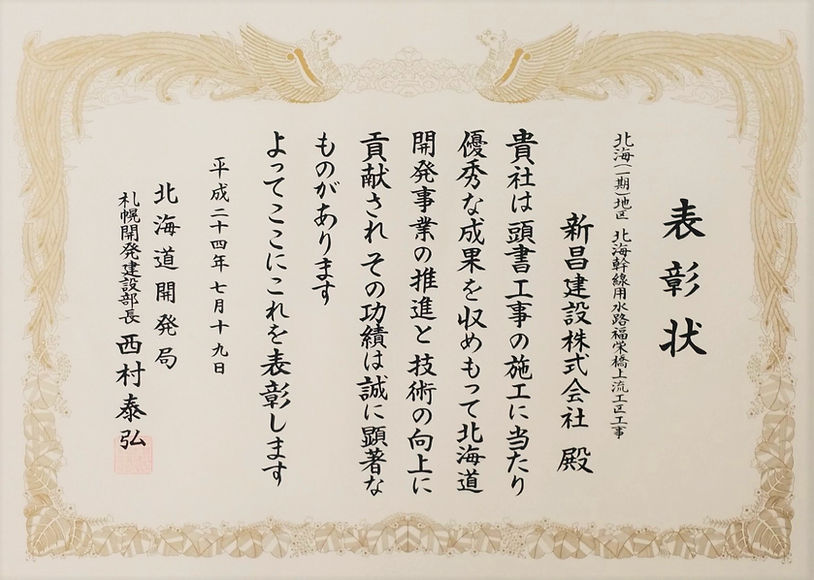 表彰状
北海(一期)地区 北海幹線用水路福栄橋上流工区工事
新昌建設株式会社 殿
貴社は頭書工事の施工に当たり
優秀な成果を収めもって北海道
開発事業の推進と技術の向上に
貢献されその功績は誠に顕著な
ものがあります
よってここにこれを表彰します
平成二十四年七月十九日
北海道開発局
札幌開発建設部長 西村泰弘